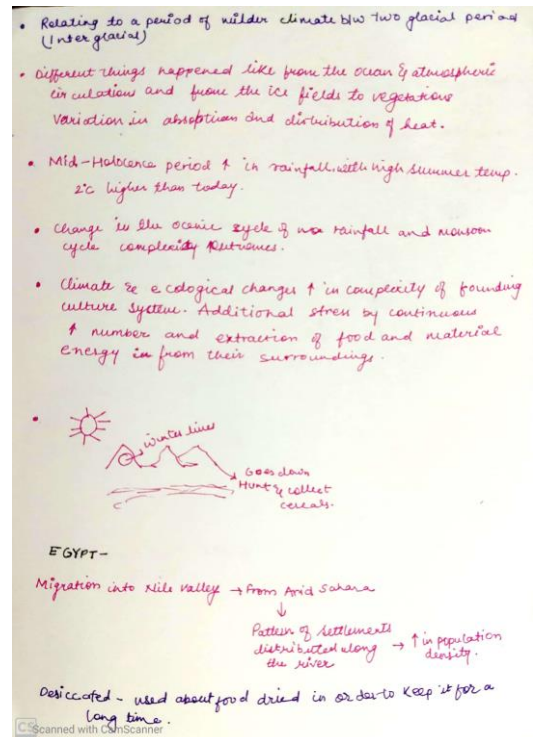 • Relating to a period of milder climate b/w two glacial period
(Interglacial)
• Different things happened like from the ocean & atmospheric
circulations and from the ice fields to vegetations
variation in absoption and distribution of heat.
• Mid-Holocene period ↑ in rainfall with high summer temp.
2°c higher than today.
• Change in the oceanic cycle of rainfall and monsoon
cycle complexity outcomes.
• Climate & ecological changes ↑ in complexity of founding
culture system. Additional stress by continuous
↑ number and extraction of food and material
energy from their surroundings.
•
winter lines
Goes down
Hunt & collect
cereals.
EGYPT-
Migration into Nile Valley → From Arid Sahara
↓
Pattern of Settlements
distributed along → ↑ in population
the river density.
Desiccated - used about food dried in order to keep it for a
long time.
CS Scanned with CamScanner